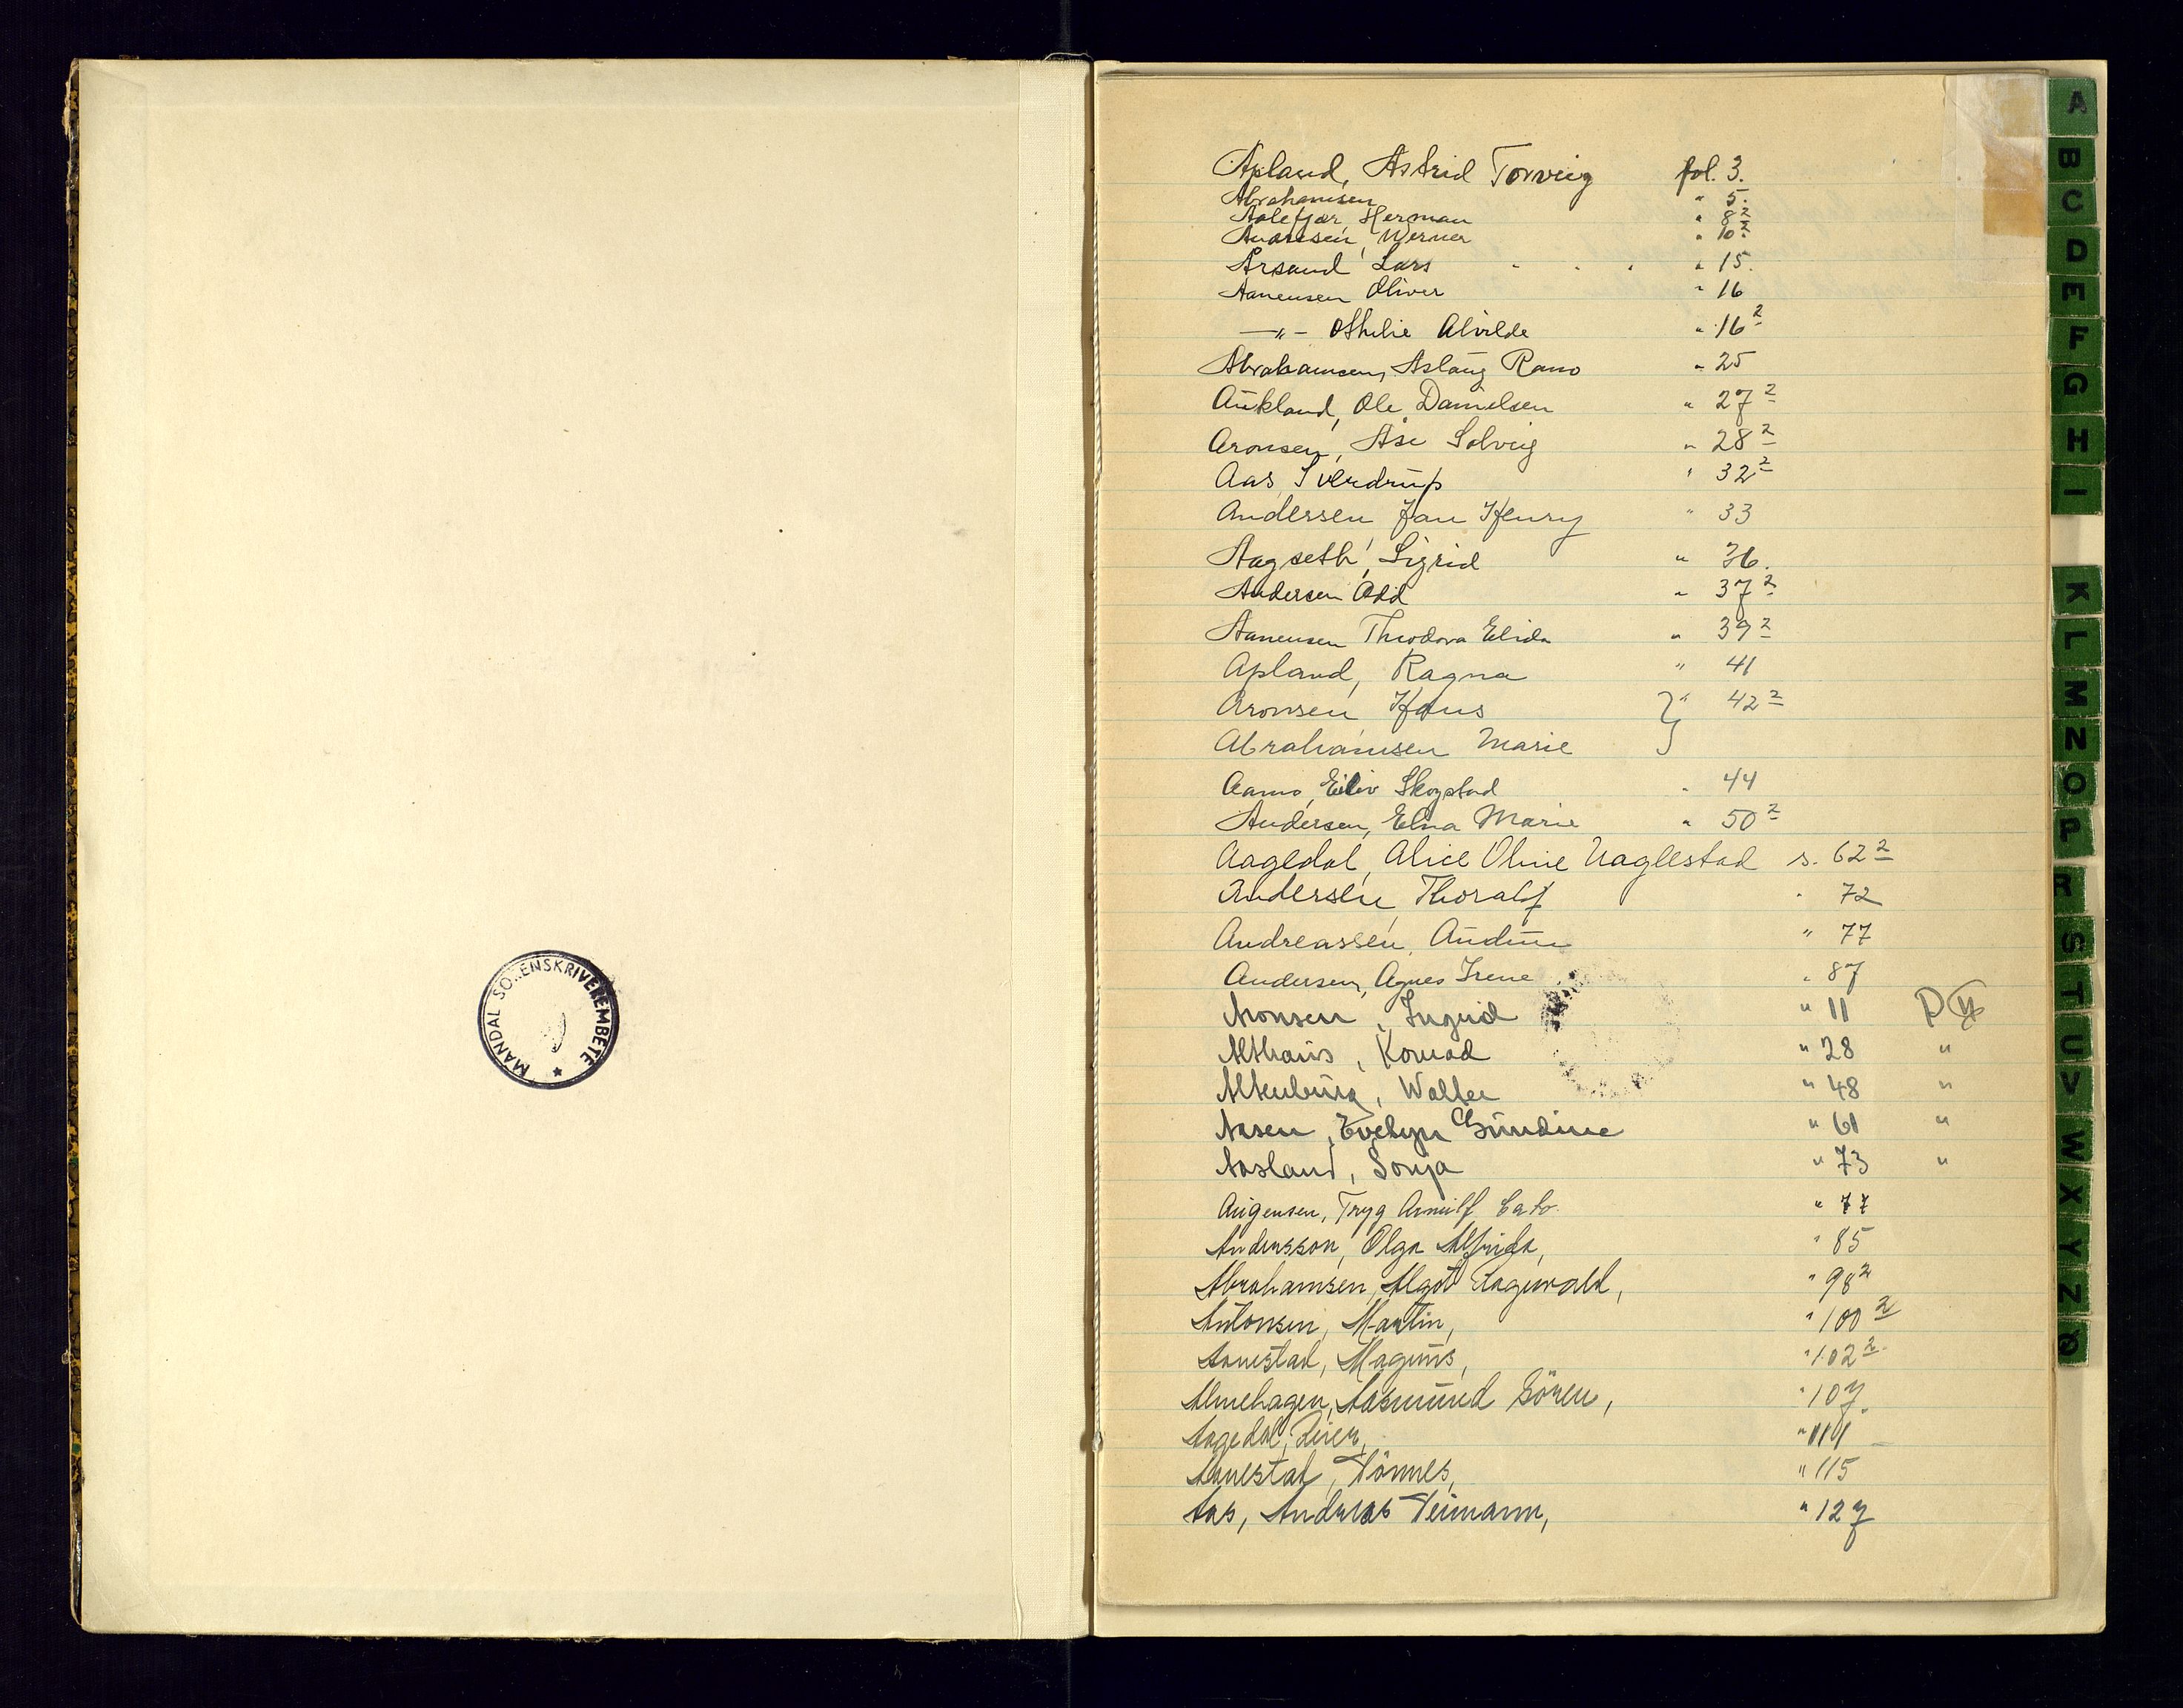 MANDAL SORENSKRIVEREMBETE
Apland, Astrid Torveig fol. 3.
Abrahamsen " 5.
Aalefjær, Herman " 8 2
Andresen, Werner " 10 2
Årsand Lars " 15.
Aanensen Oliver " 16
—"— Othilie Alvilde " 16 2
Abrahamsen, Aslaug Ramo " 25
Aukland, Ole Danielsen " 27 2
Aronsen, Åse Solveig " 28 2
Aas, Sverdrup " 32 2
Andersen, Jan Henry " 33
Aagseth, Sigrid " 36.
Andersen Odd " 37 2
Aanensen Theodora Elida " 39 2
Apland, Ragna " 41
Aronsen Hans } " 42 2
Abrahamsen Marie
Aamo, Eiliv Skogstad " 44
Andersen, Elna Marie " 50 2
Aagedal, Alice Oline Naglestad s. 62 2
Andersen, Thoralf " 72
Andreassen, Audun " 77
Andersen, Agnes Irene " 87
Aronsen, Ingrid " 11 P
Althaus, Konrad " 28 "
Altenburg, Walter " 48 "
Aasen, Evelyn Gundine " 61 "
Aasland, Sonja " 73 "
Augensen, Tryg Arnulf Cato. " 77
Andersson, Olga Alfrida, " 85
Abrahamsen, Algot Ragnvald, " 98 2
Antonsen, Martin, " 100 2
Aanestad, Magnus, " 102 2
Almehagen, Aasmund Sören, " 107.
Aagedal, " 111
Aanestad, Tönnes, " 115
Aas, Andreas Teimann, " 127
A
B
C
D
E
F
G
H
I
K
L
M
N
O
P
R
S
T
U
V
W
X
Y
Z
Ø